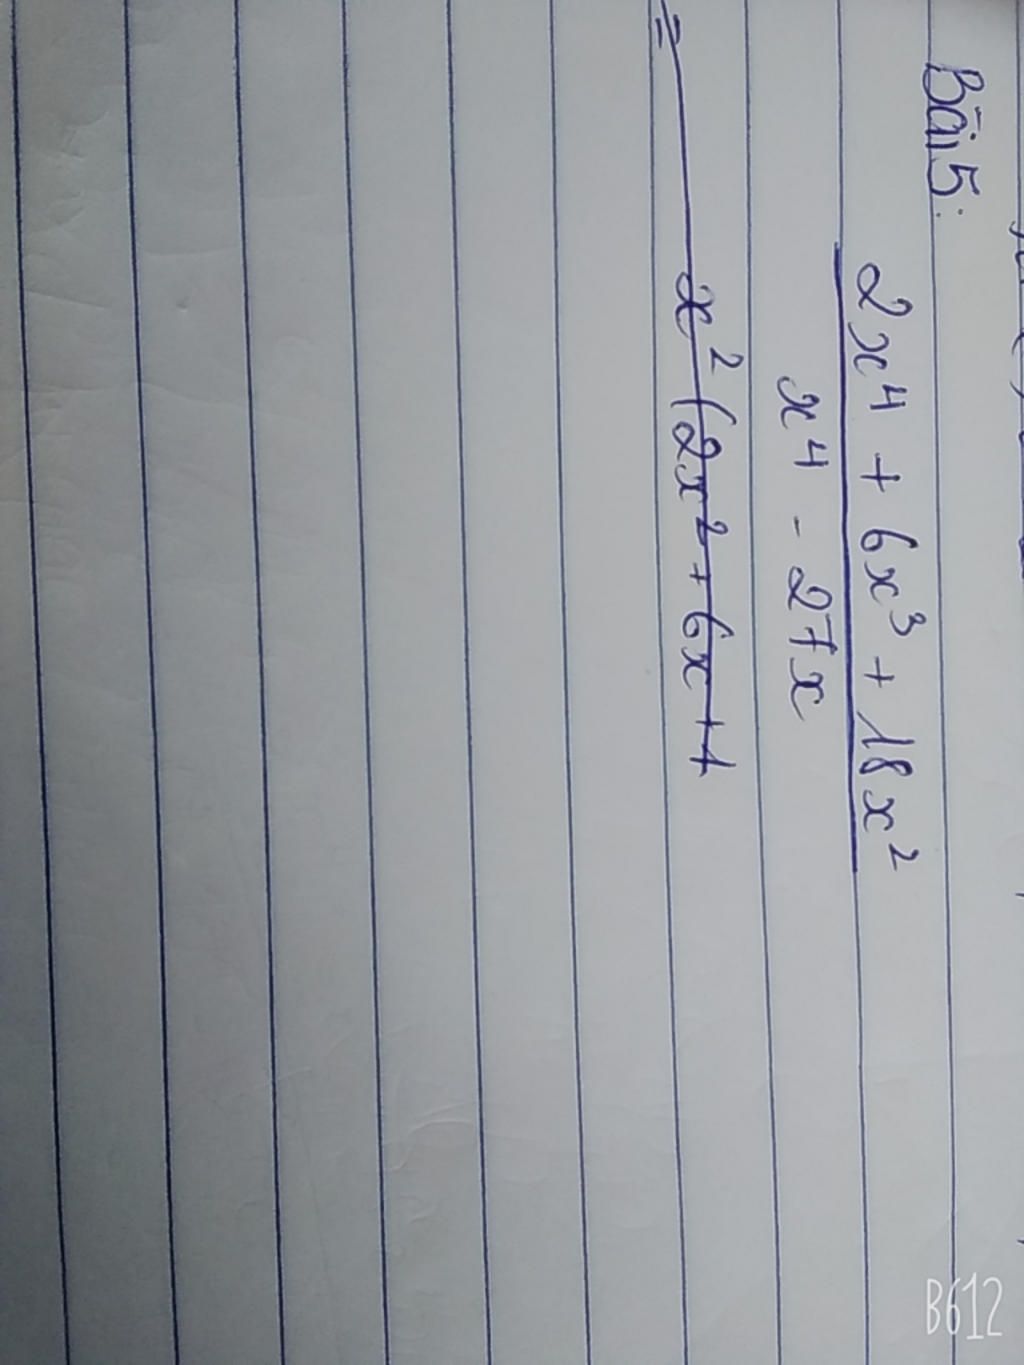 Bài 5:
2x⁴ + 6x³ + 18x²
x⁴ - 27x
= x² (2x² + 6x + 1
B612